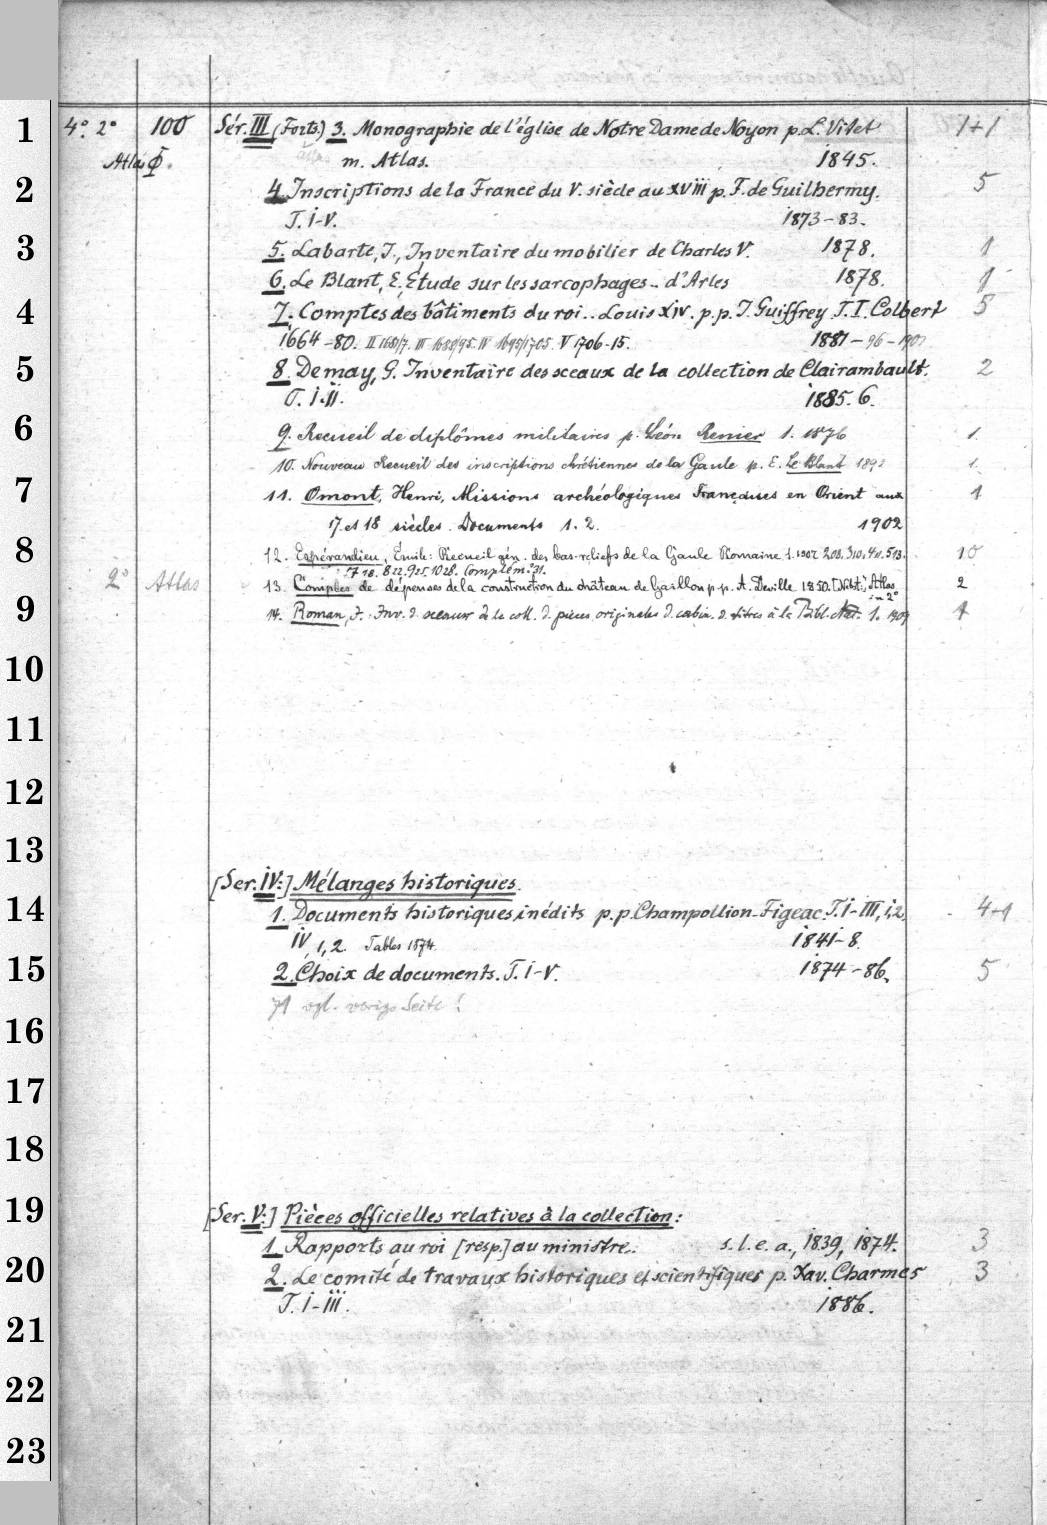 1 4°. 2° 100 Sér. III (Forts.) 3. Monographie de l'église de Notre Dame de Noyon p. L. Vitet 1+1
Atlas m. Atlas. 1845.
2 4. Inscriptions de la France du V. siècle au XVIII p. F. de Guilhermy. 5
T. I-V. 1873-83.
3 5. Labarte, J., Inventaire du mobilier de Charles V. 1878. 1
6. Le Blant, E. Étude sur les sarcophages.. d'Arles 1878. 1
4 7. Comptes des bâtiments du roi.. Louis XIV. p.p. J. Guiffrey T. I. Colbert 5
1664-80. II 1681/7. III 1688/95. IV 1695/1705. V 1706-15. 1881-96-1901
5 8. Demay, G. Inventaire des sceaux de la collection de Clairambault. 2
T. I.II. 1885.6.
6 9. Recueil de diplômes militaires p. Léon Renier 1. 1876 1.
10. Nouveau Recueil des inscriptions chrétiennes de la Gaule p. E. Le Blant 1892 1.
7 11. Omont, Henri, Missions archéologiques Françaises en Orient aux 1
17. et 18 siècles. Documents 1. 2. 1902
8 12. Espérandieu, Émile: Recueil gén. des bas-reliefs de la Gaule Romaine 1. 1907. 208. 310. 411. 513. 10
822. 925. 1028. Complém.
2° Atlas 13. Comptes de dépenses de la construction du château de Gaillon p.p. A. Deville 1850. Atlas 2
in 2°
9 14. Roman, J. Inv. d. sceaux de la coll. d. pièces originales d. cabin. d. titres à la Bibl. Nat. 1. 1909 1
10
11
12
13
[Ser. IV:] Mélanges historiques.
14 1. Documents historiques inédits p.p. Champollion-Figeac. T. I-III, 1,2, 4+1
IV, 1, 2. Tables 1874. 1841-8.
15 2. Choix de documents. T. I-V. 1874-86. 5
vgl. vorige Seite!
16
17
18
19 [Ser. V:] Pièces officielles relatives à la collection:
1. Rapports au roi [resp.] au ministre. s. l. e. a., 1839, 1874. 3
20 2. Le comité de travaux historiques et scientifiques p. Xav. Charmes 3
T. I-III. 1886.
21
22
23